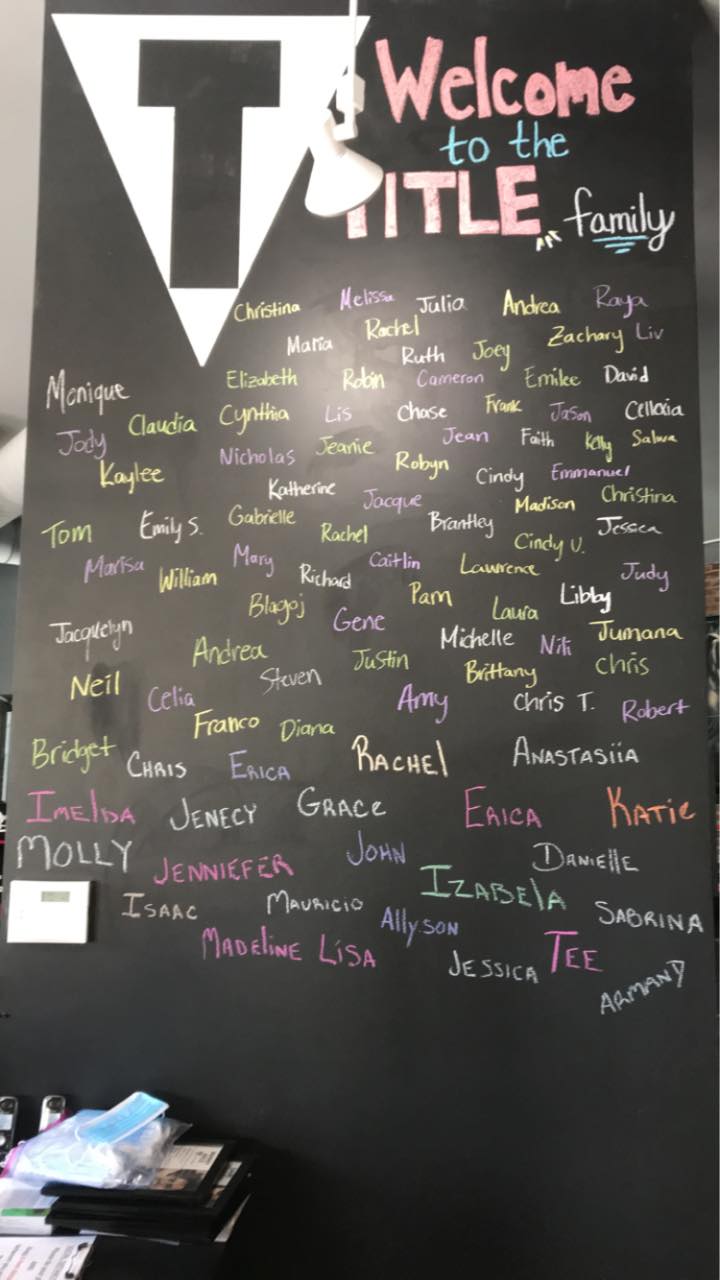 T
Welcome
to the
TITLE family
Christina Melissa Julia Andrea Raya
Maria Rachel Ruth Joey Zachary Liv
Monique Elizabeth Robin Cameron Emilee David
Jody Claudia Cynthia Lis Chase Frank Jason
Nicholas Jeanie Jean Faith Kelly Salwa
Kaylee Katherine Robyn Cindy Emmanuel
Jacque Madison Christina
Tom Emily S. Gabrielle Rachel Brantley Cindy V. Jessica
Marisa William Mary Richard Caitlin Lawrence Judy
Blagoj Gene Pam Laura Libby
Jacquelyn Andrea Justin Michelle Niti Jumana
Neil Celia Steven Amy Brittany Chris
Franco Diana Chris T. Robert
Bridget CHRIS ERICA RACHEl ANASTASiiA
IMElDA JENECY GRACe ERICA KATiE
MOLLY JENNIEFER JOHN DANiEllE
ISAAC MAURiCiO AllySON IZABElA SABRINA
MADEliNE LiSA JESSICA TEE
ARMANY